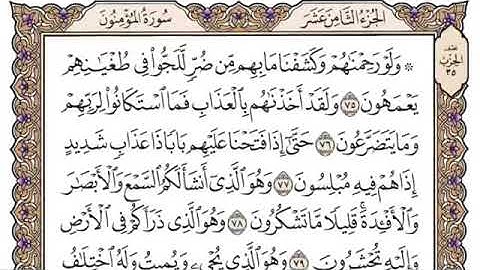 الجزء الثامن عشر
سورة المؤمنون
نصف
الحزب
٣٥
۞ وَلَوْ رَحِمْنَٰهُمْ وَكَشَفْنَا مَا بِهِم مِّن ضُرٍّ لَّلَجُّوا۟ فِى طُغْيَٰنِهِمْ
يَعْمَهُونَ ٧٥ وَلَقَدْ أَخَذْنَٰهُم بِٱلْعَذَابِ فَمَا ٱسْتَكَانُوا۟ لِرَبِّهِمْ
وَمَا يَتَضَرَّعُونَ ٧٦ حَتَّىٰٓ إِذَا فَتَحْنَا عَلَيْهِم بَابًا ذَا عَذَابٍ شَدِيدٍ
إِذَا هُمْ فِيهِ مُبْلِسُونَ ٧٧ وَهُوَ ٱلَّذِىٓ أَنشَأَ لَكُمُ ٱلسَّمْعَ وَٱلْأَبْصَٰرَ
وَٱلْأَفْـِٔدَةَ ۚ قَلِيلًا مَّا تَشْكُرُونَ ٧٨ وَهُوَ ٱلَّذِى ذَرَأَكُمْ فِى ٱلْأَرْضِ
وَإِلَيْهِ تُحْشَرُونَ ٧٩ وَهُوَ ٱلَّذِى يُحْىِۦ وَيُمِيتُ وَلَهُ ٱخْتِلَٰفُ